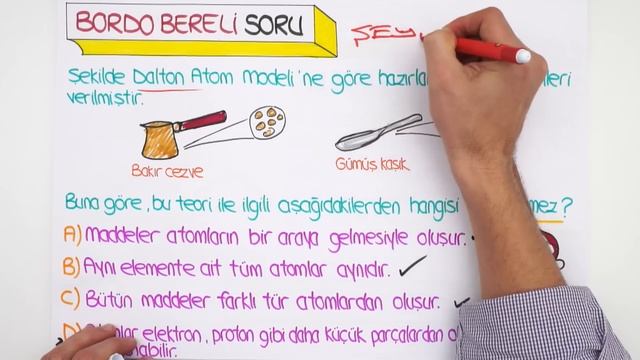 BORDO BERELİ SORU
ŞEY
Şekilde Dalton Atom Modeli'ne göre
verilmiştir.
Bakır cezve
Gümüş kaşık
Buna göre, bu teori ile ilgili aşağıdakilerden hangisi mez?
A) Maddeler atomların bir araya gelmesiyle oluşur.
B) Aynı elemente ait tüm atomlar aynıdır.
C) Bütün maddeler farklı tür atomlardan oluşur.
elektron, proton gibi daha küçük parçalardan